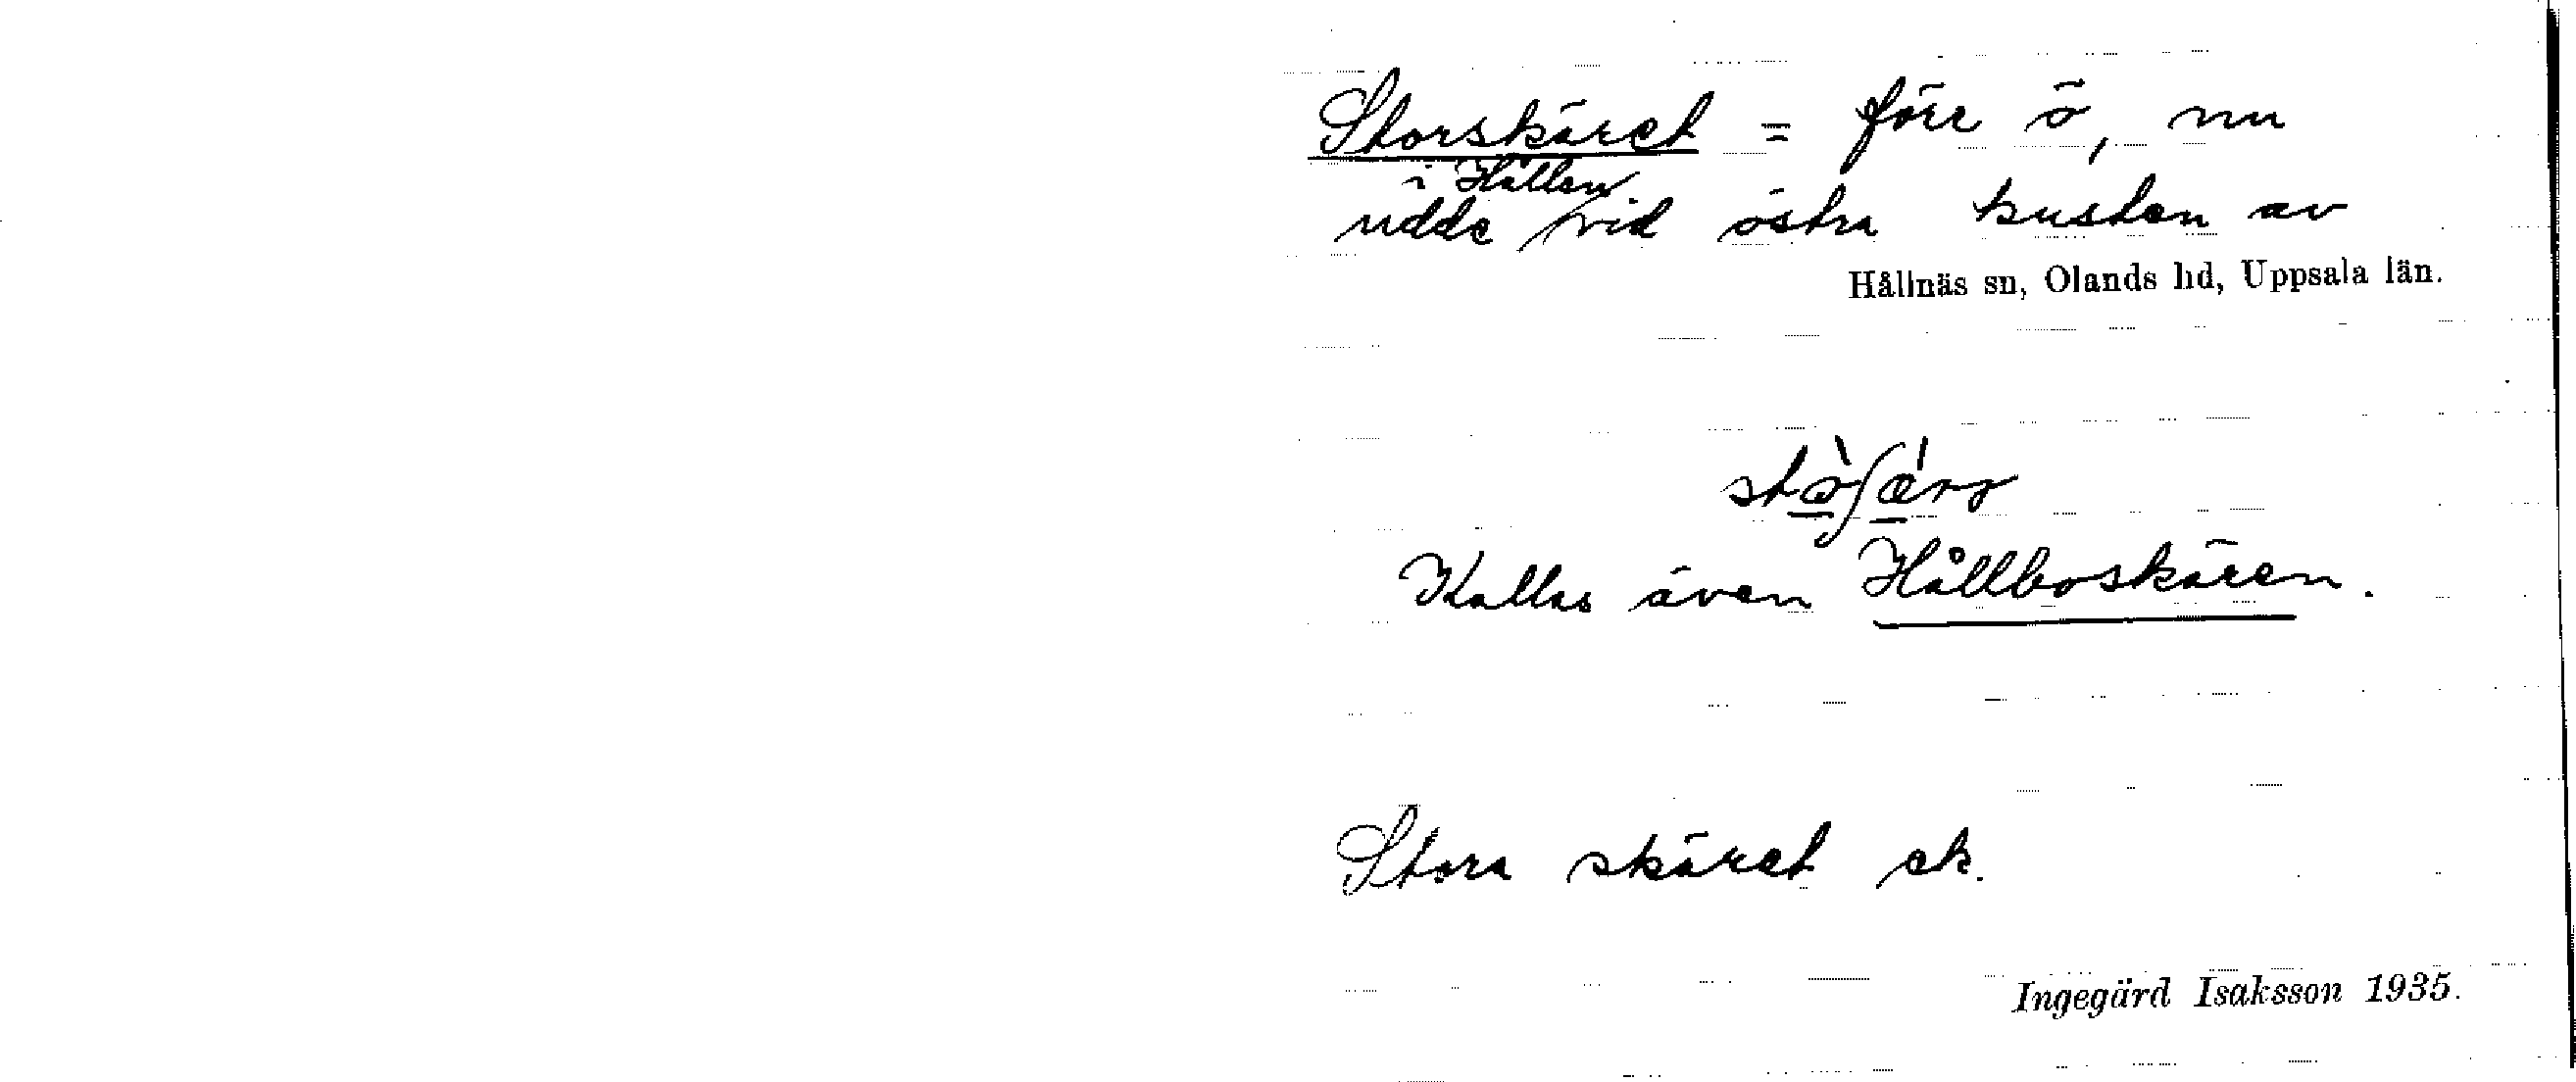 Storskäret = förr ö, nu
i Hållen
udde vid östra kusten av
Hållnäs sn, Olands hd, Uppsala län.
Kallas även Hållboskären.
Stora skäret ek.
Ingegärd Isaksson 1935.